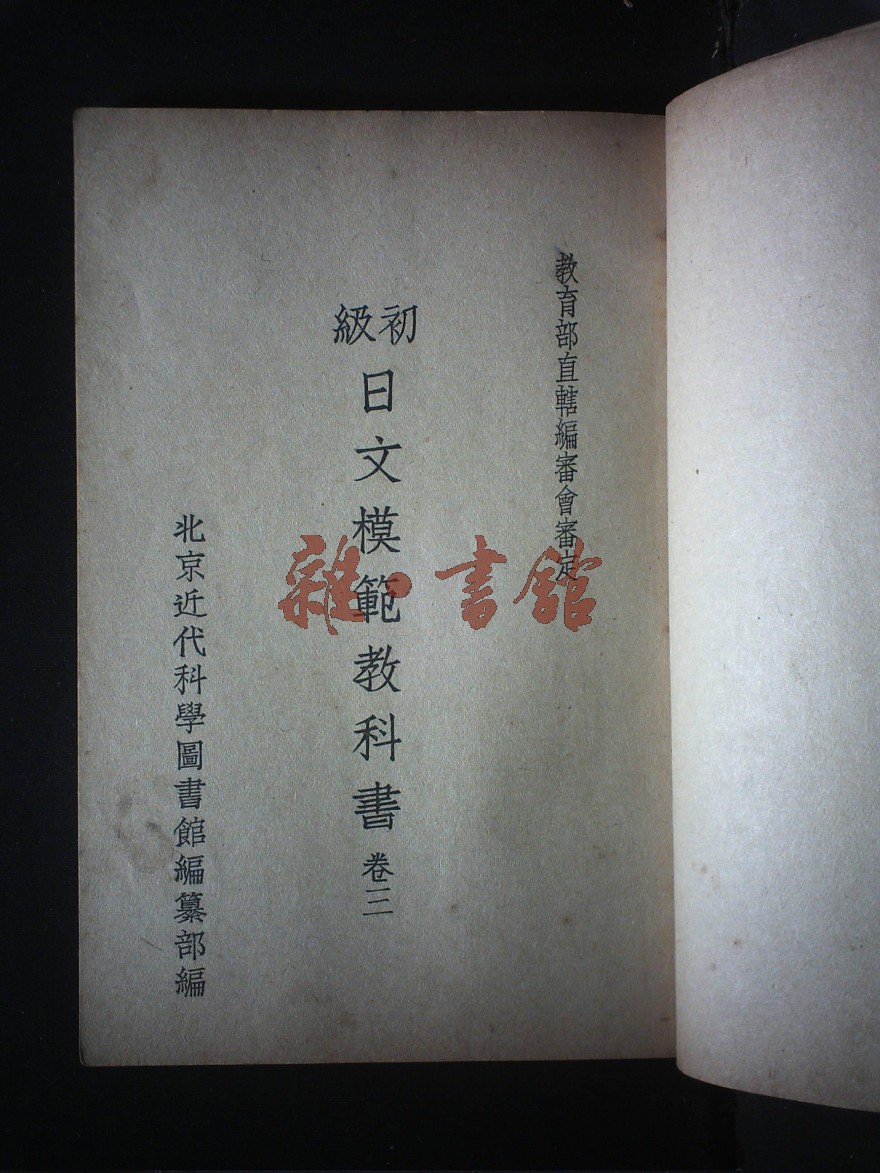 教育部直轄編審會審定
初級
日文模範教科書 卷三
北京近代科學圖書館編纂部編
雜·書館